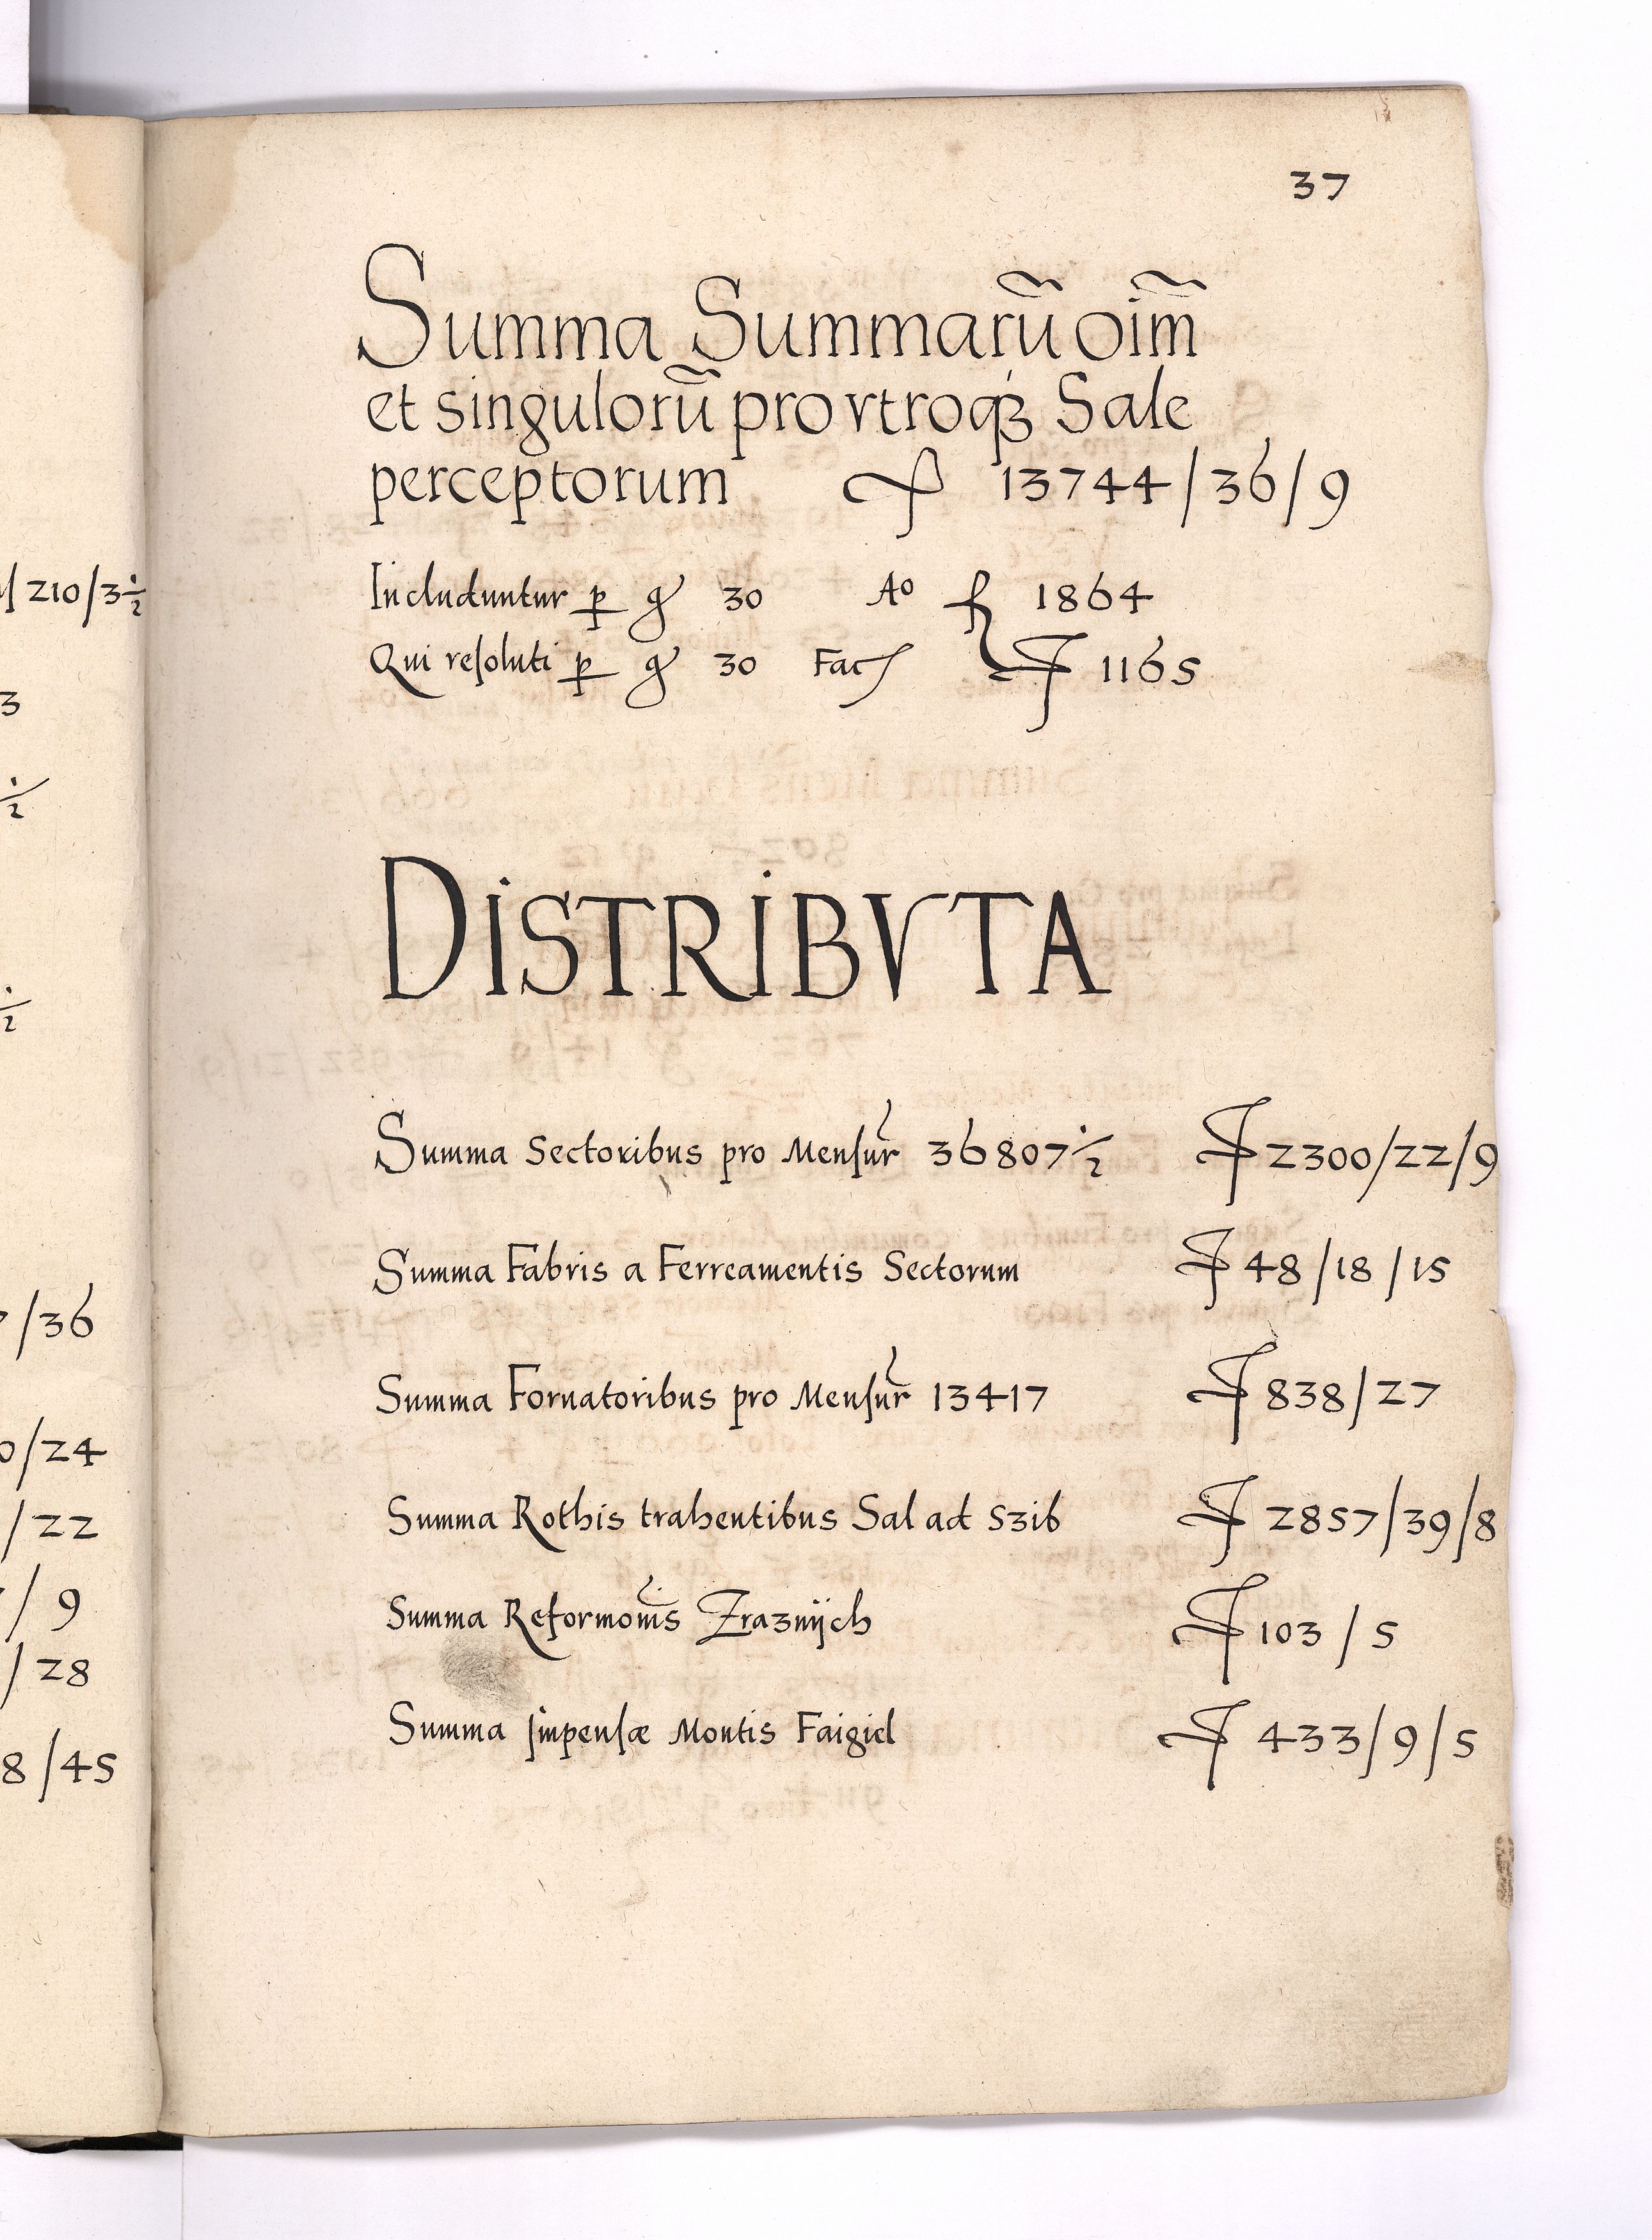 37
Summa Summarũ oim̃
et singulorũ pro vtroqȝ Sale
perceptorum 13744/36/9
Includuntur p̱ gͬ 30 Ao fl 1864
Qui resoluti p̱ gͬ 30 Fac 1165
DISTRIBVTA
Summa Sectoribus pro Mensur 36807½ 2300/22/9
Summa Fabris a Ferreamentis Sectorum 48/18/15
Summa Fornatoribus pro Mensur 13417 838/27
Summa Rothis trahentibus Sal ad szib 2857/39/8
Summa Reformonis̃ Zraznijch 103/5
Summa Impensæ Montis Faigiel 433/9/5
210/3½
3
½
½
/36
0/24
/22
/9
/28
8/45